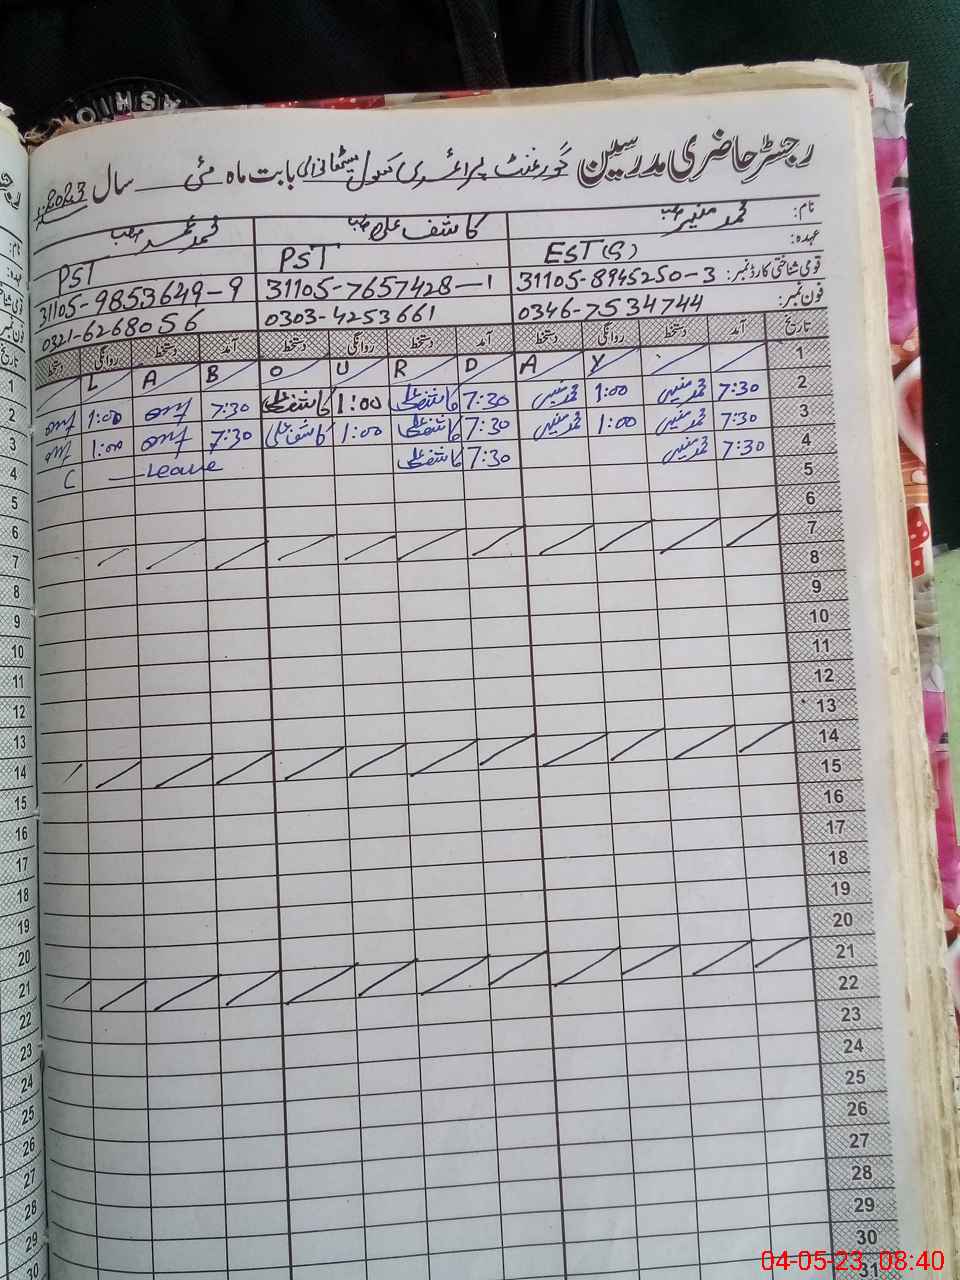 رجسٹر حاضری مدرسین گورنمنٹ پرائمری سکول بابت ماہ مئی سال 2023ء
نام: محمد منیر صاحب کاشف علی صاحب محمد صاحب
عہدہ: EST(S) PST PST
قومی شناختی کارڈ نمبر: 31105-8945250-3 31105-7657428-1 31105-9853649-9
فون نمبر: 0346-7534744 0303-4253661 0321-6268056
تاریخ آمد دستخط روانگی دستخط آمد دستخط روانگی دستخط آمد دستخط روانگی دستخط
L A B O U R D A Y 1
1:00 7:30 کاشف علی 1:00 کاشف علی 7:30 محمد منیر 1:00 محمد منیر 7:30 2
1:00 7:30 کاشف علی 1:00 کاشف علی 7:30 محمد منیر 1:00 محمد منیر 7:30 3
C — Leave کاشف علی 7:30 محمد منیر 7:30 4
5
6
7
8
9
10
11
12
13
14
15
16
17
18
19
20
21
22
23
24
25
26
27
28
29
30
31
04-05-23 08:40